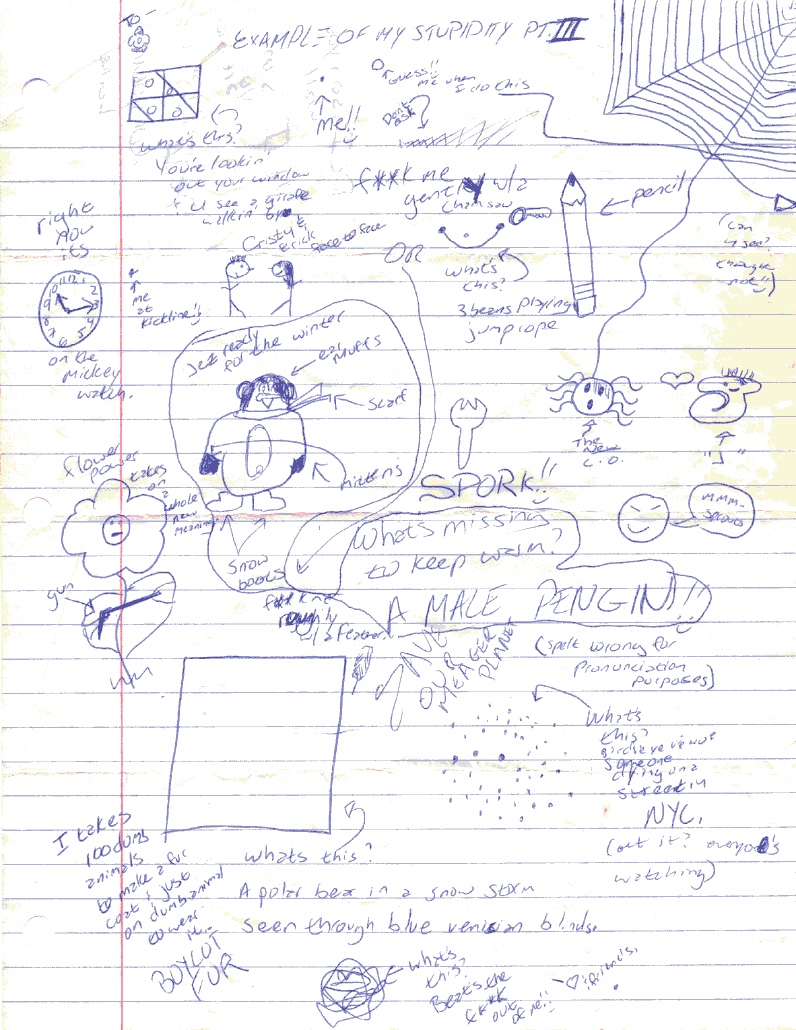 TO-
EXAMPLE OF MY STUPIDITY PT. III
Guess!!
me when
I do this
Don't
ask
me!!
What's this?
You're lookin'
out your window
& u see a girafe
walkin' by
f**k me
gently w/a
chainsaw
OR
pencil
right
now
its
12
11
10
9
8
7
6
5
4
3
2
on the
mickey
watch.
me
at
kickline!!
Cristy &
Erick
face to face
what's
this?
3 beans playing
jumprope
(can
u see?
not!!)
Jest ready
for the winter
ear muffs
scarf
mittens
snow
boots
SPORK!!
The
New
L.O.
"J"
mmm-
sporks
flower
power
takes
on
a
whole
new
meaning
gun
Whats missing
to keep warm?
A MALE PENGIN!!
(spelt wrong for
pronunciation
purposes)
f**k me
roughly
w/a feather..
OUR
MEAGER
PLANET
What's
this?
birdseye view of
someone
dying on a
street in
NYC.
(get it? everyone's
watching)
I takes
100 dumb
animals
to make a fur
coat & just
on dumb animal
to wear
it..
BOYCOT
FUR
whats this?
A polar bear in a snow storm
seen through blue venision blinds.
what's
this?
Beats the
f**k
out
of me!!
friends.